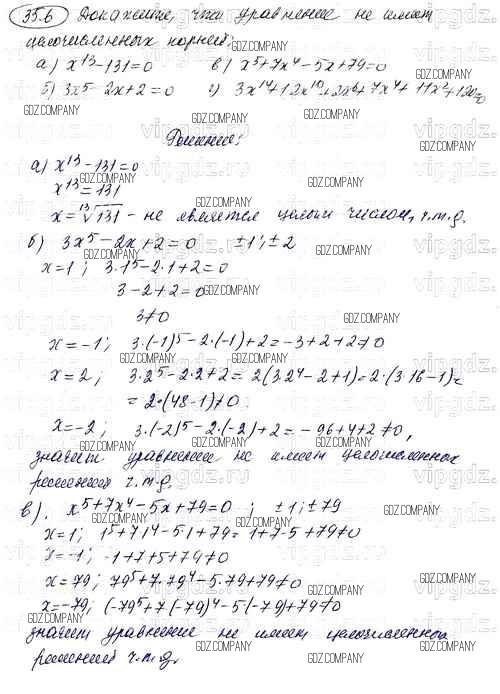 35.6 Докажите, что уравнение не имеет
целочисленных корней:
а) x¹³ - 131 = 0 в) x⁵ + 7x⁴ - 5x + 79 = 0
б) 3x⁵ - 2x + 2 = 0 г) 3x¹⁴ + 12x¹⁰ + 2x⁶ + 7x⁴ + 11x² + 120 = 0
Решение:
а) x¹³ - 131 = 0
x¹³ = 131
x = ¹³√131 - не является целым числом, ч.т.д.
б) 3x⁵ - 2x + 2 = 0 ±1; ±2
x = 1; 3·1⁵ - 2·1 + 2 = 0
3 - 2 + 2 = 0
3 ≠ 0
x = -1; 3·(-1)⁵ - 2·(-1) + 2 = -3 + 2 + 2 ≠ 0
x = 2; 3·2⁵ - 2·2 + 2 = 2(3·2⁴ - 2 + 1) = 2·(3·16 - 1) =
= 2·(48 - 1) ≠ 0.
x = -2; 3·(-2)⁵ - 2·(-2) + 2 = -96 + 4 + 2 ≠ 0,
значит уравнение не имеет целочисленных
решений ч.т.д.
в). x⁵ + 7x⁴ - 5x + 79 = 0; ±1; ±79
x = 1; 1⁵ + 7·1⁴ - 5·1 + 79 = 1 + 7 - 5 + 79 ≠ 0
x = -1; -1 + 7 + 5 + 79 ≠ 0
x = 79; 79⁵ + 7·79⁴ - 5·79 + 79 ≠ 0
x = -79; (-79⁵ + 7(-79)⁴ - 5·(-79) + 79 ≠ 0
значит уравнение не имеет целочисленной
решений ч.т.д.
GDZ.COMPANY
vipgdz.ru